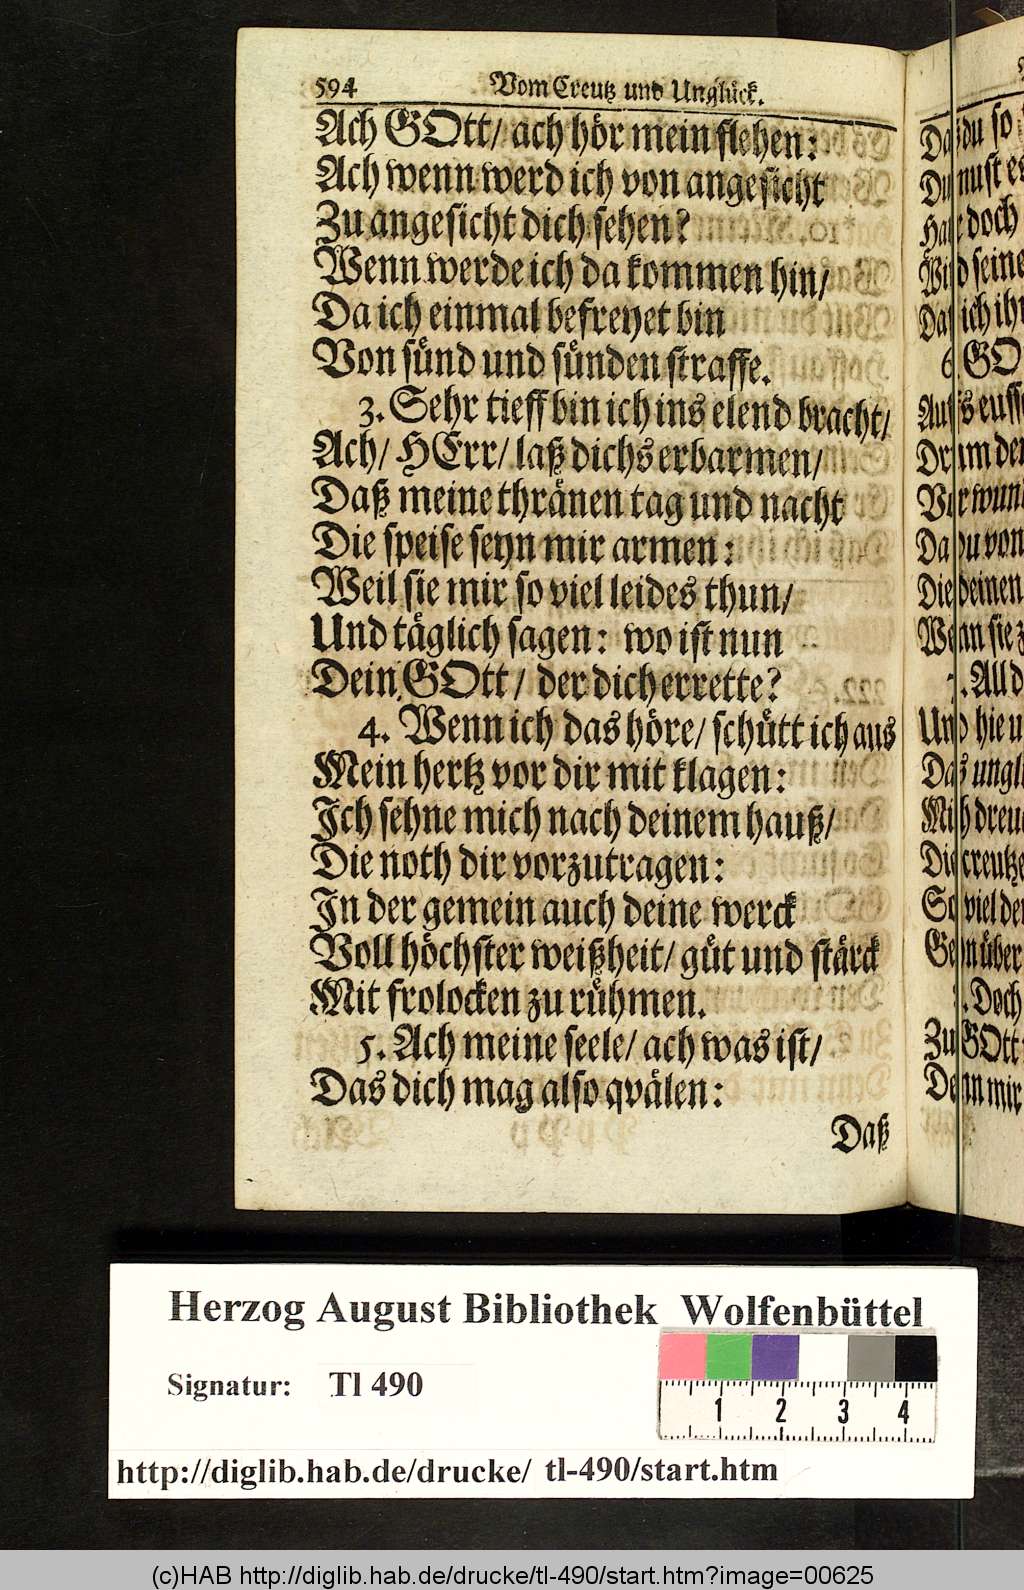 594 Vom Creutz und Unglück.
Ach GOtt/ ach hör mein flehen:
Ach wenn werd ich von angesicht
Zu angesicht dich sehen?
Wenn werde ich da kommen hin/
Da ich einmal befreyet bin
Von sünd und sünden straffe.
3. Sehr tieff bin ich ins elend bracht/
Ach/ HErr/ laß dichs erbarmen/
Daß meine thränen tag und nacht
Die speise seyn mir armen:
Weil sie mir so viel leides thun/
Und täglich sagen: wo ist nun
Dein GOtt/ der dich errette?
4. Wenn ich das höre/ schütt ich aus
Mein hertz vor dir mit klagen:
Ich sehne mich nach deinem hauß/
Die noth dir vorzutragen:
In der gemein auch deine werck
Voll höchster weißheit/ güt und stärck
Mit frolocken zu rühmen.
5. Ach meine seele/ ach was ist/
Das dich mag also qvälen:
Daß
Herzog August Bibliothek Wolfenbüttel
Signatur: Tl 490
1 2 3 4
http://diglib.hab.de/drucke/ tl-490/start.htm
(c)HAB http://diglib.hab.de/drucke/tl-490/start.htm?image=00625